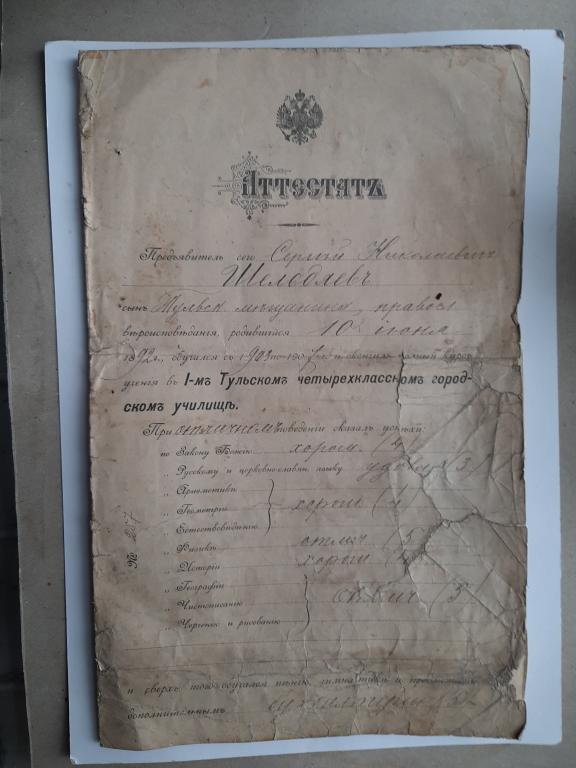 Аттестатъ
Предъявитель сего Сергѣй Николаевичъ
Шелобаевъ
сынъ Тульск мѣщанина, правосл
вѣроисповѣданія, родившійся 10 іюня
1892 г., обучался съ 1903 по 190 и окончилъ полный курсъ
ученія въ I-мъ Тульскомъ четырехклассномъ город-
скомъ училищѣ.
При отличномъ поведеніи оказалъ успѣхи:
по Закону Божію хорош (4
„ Русскому и церковнославян. языку удовл (3)
„ Ариѳметикѣ
„ Геометріи хорош (4
„ Естествовѣдѣнію
„ Физикѣ отлич (5
„ Исторіи хорош (4
„ Географіи
„ Чистописанію отлич 5
„ Черченію и рисованію
№ 257
и сверхъ того обучался пѣнію, гимнастикѣ и
дополнительнымъ